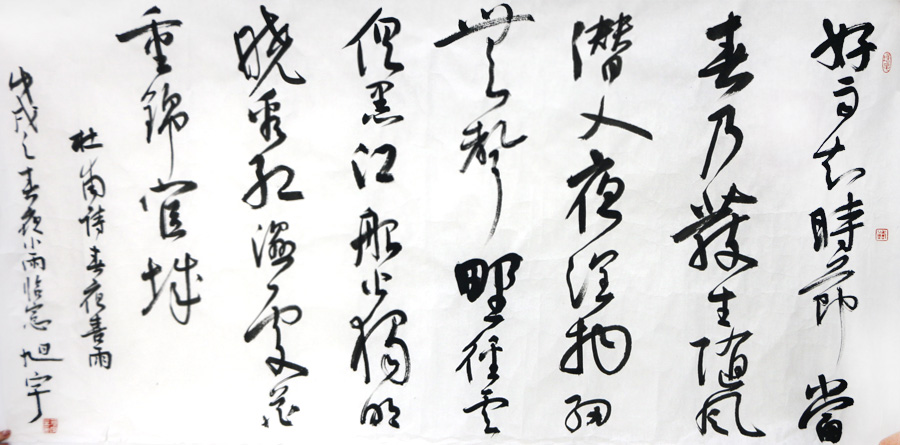 好雨知時節當
春乃發生隨風
潛入夜潤物細
無聲野徑雲
俱黑江船火獨明
曉看紅濕處花
重錦官城
杜甫詩春夜喜雨
戊戌之春夜小雨臨窓旭宇